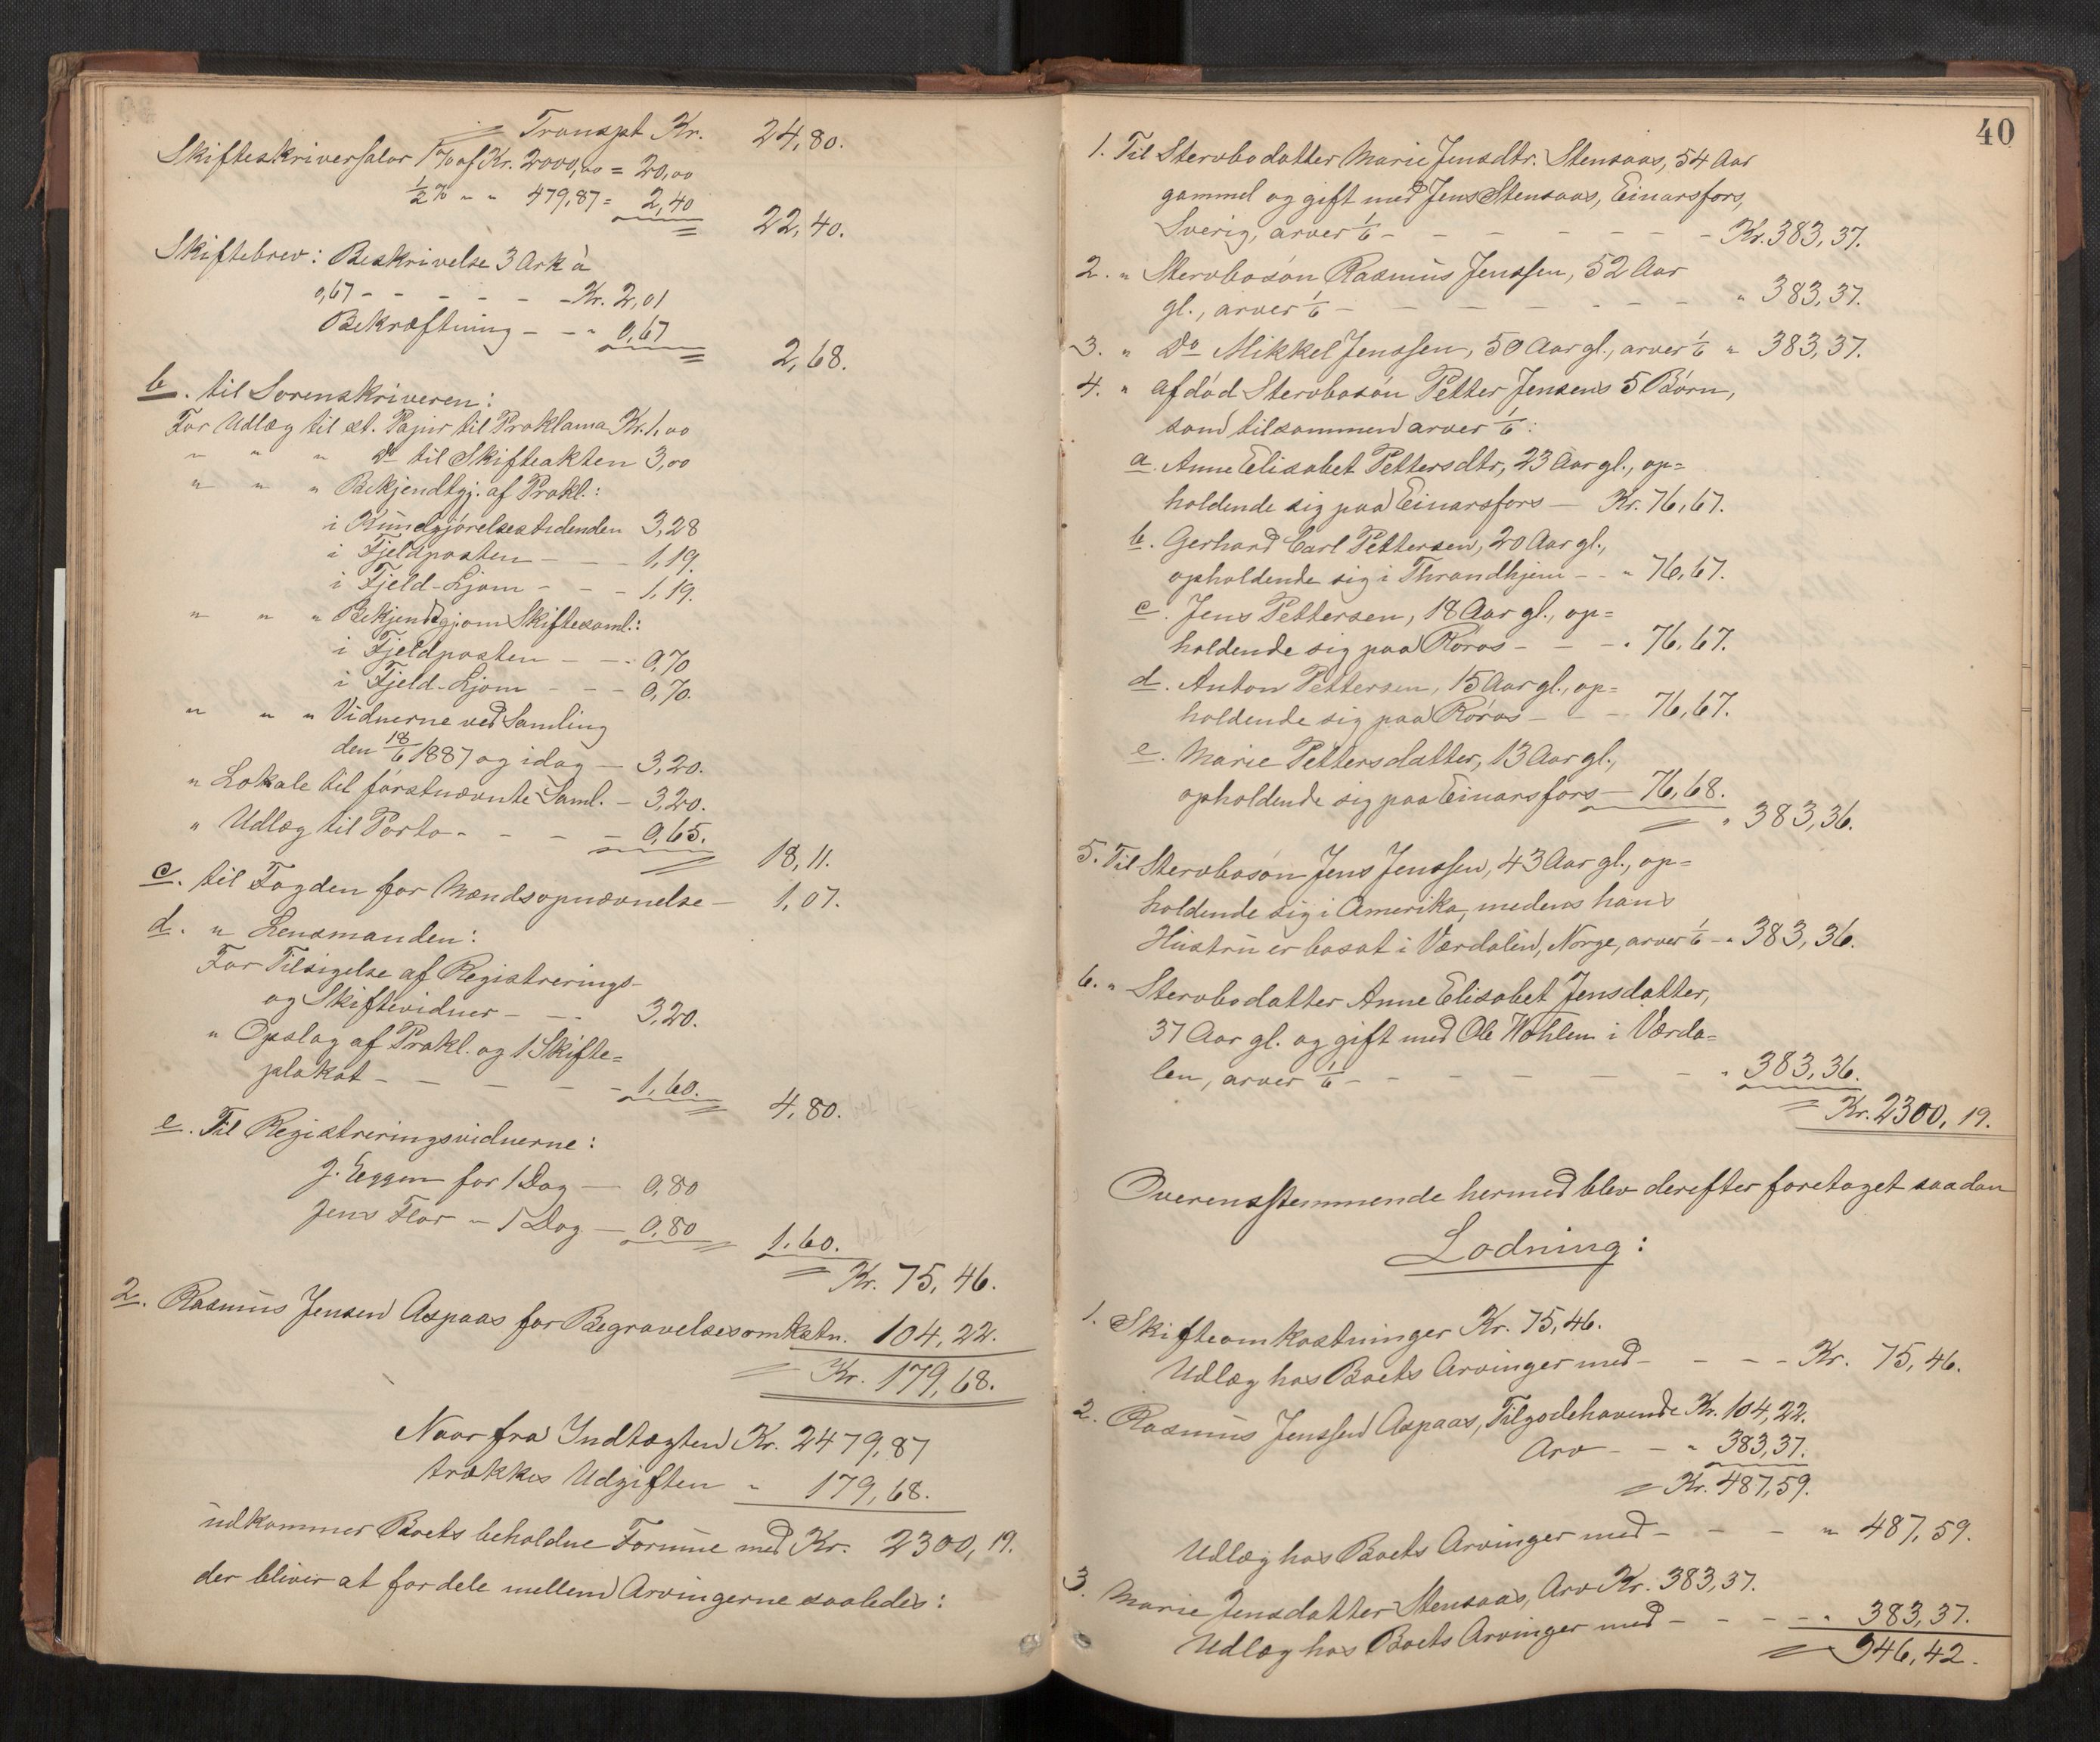 Transpt Kr. 24,80.
Skifteskriversalær 1% af Kr. 2000,00 = 20,00
½% " " 479,87 = 2,40
22,40.
Skiftebrev: Beskrivelse 3 Ark à
0,67 - - - - - - Kr. 2,01
Bekræftning - - " 0,67
2,68.
b. til Sorenskriveren:
For Udlæg til st. Papir til Proklama Kr. 1,00
" " " Do til Skifteakten 3,00
" " " Bekjendtgj. af Prokl.:
i Kundgjørelsestidenden 3,28
i Fjeldposten - - - 1,19.
i Fjeld-Ljom - - - 1,19.
" " " Bekjendtgj om Skiftesaml.:
i Fjeldposten - - - 0,70
i Fjeld-Ljom - - - 0,70.
" " " Vidnerne ved Samling
den 18/6 1887 og idag - 3,20.
" Lokale til førstnævnte Saml. - 3,20.
" Udlæg til Porto - - - - 0,65.
18,11.
c. til Fogden for Mandsopnævnelse - 1,07.
d. " Lensmanden:
For Tilsigelse af Registrerings-
og Skiftevidner - - - 3,20.
" Opslag af Prokl. og 1 Skifte=
plakat - - - - - - 1,60.
4,80.
e. Til Registreringsvidnerne:
J. Eggen for 1 Dag - 0,80
Jens Flor " 1 Dag - 0,80
1,60.
Kr. 75,46.
2. Rasmus Jensen Aspaas for Begravelsesomkstn. 104,22.
Kr. 179,68.
Naar fra Indtægten Kr. 2479,87
trækkes Udgiften " 179,68.
udkommer Boets beholdne Formue med Kr. 2300,19.
der bliver at fordele mellem Arvingerne saaledes:
40
1. Til Stervbodatter Marie Jensdtr. Stensaas, 54 Aar
gammel og gift med Jens Stensaas, Einarsfors,
Sverig, arver 1/6 - - - - - - - Kr. 383,37.
2. " Stervbosøn Rasmus Jenssen, 52 Aar
gl., arver 1/6 - - - - - - - " 383,37.
3. " Do Mikkel Jenssen, 50 Aar gl., arver 1/6 " 383,37.
4. " afdød Stervbosøn Petter Jensens 5 Børn,
som tilsammen arver 1/6:
a. Anne Elisabet Pettersdtr, 23 Aar gl., op=
holdende sig paa Einarsfors - Kr. 76,67.
b. Gerhard Carl Pettersen, 20 Aar gl.,
opholdende sig i Throndhjem - - " 76,67.
c. Jens Pettersen, 18 Aar gl., op=
holdende sig paa Røros - - - " 76,67.
d. Anton Pettersen, 15 Aar gl., op=
holdende sig paa Røros - - - 76,67.
e. Marie Pettersdatter, 13 Aar gl.,
opholdende sig paa Einarsfors - 76,68.
" 383,36.
5. Til Stervbosøn Jens Jenssen, 43 Aar gl., op=
holdende sig i Amerika, medens hans
Hustru er bosat i Værdalen, Norge, arver 1/6 - " 383,36.
6. " Stervbodatter Anne Elisabet Jensdatter,
37 Aar gl. og gift med Ole Wohlen i Værda=
len, arver 1/6 - - - - - - - " 383,36.
Kr. 2300,19.
Overensstemmende hermed blev derefter foretaget saadan
Lodning:
1. Skifteomkostninger Kr. 75,46.
Udlæg hos Boets Arvinger med - - - - Kr. 75,46.
2. Rasmus Jenssen Aspaas, Tilgodehavende Kr. 104,22.
Arv - - " 383,37.
Kr. 487,59.
Udlæg hos Boets Arvinger med - - - " 487,59.
3. Marie Jensdatter Stensaas, Arv Kr. 383,37.
Udlæg hos Boets Arvinger med - - - - " 383,37.
946,42.